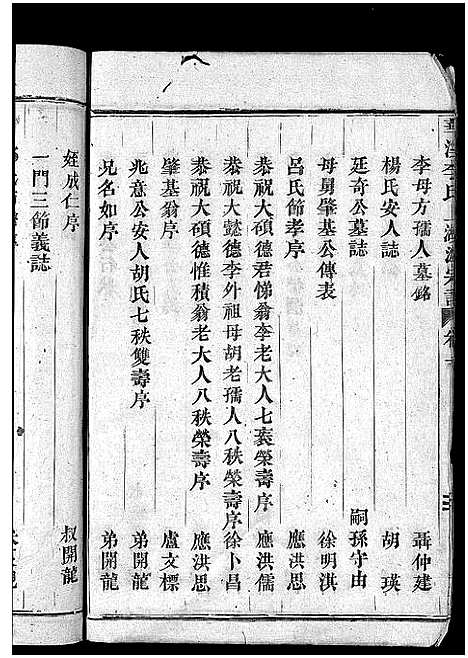 李母方孺人墓銘 聶仲建
楊氏安人墓誌 胡瑛
廷奇公墓誌 嗣孫守由
母舅肇基公傳表 徐明淇
呂氏節孝序 應洪思
恭祝大碩德君悌翁李老大人七袠榮壽序 應洪儒
恭祝大懿德李外祖母胡老孺人八秩榮壽序 徐卜昌
恭祝大碩德惟積翁老大人八秩榮壽序 應洪思
肇基翁序 盧文標
兆意公安人胡氏七秩雙壽序 弟開龍
兄名如序 弟開龍
姪成仁序 叔開龍
一門三節義誌